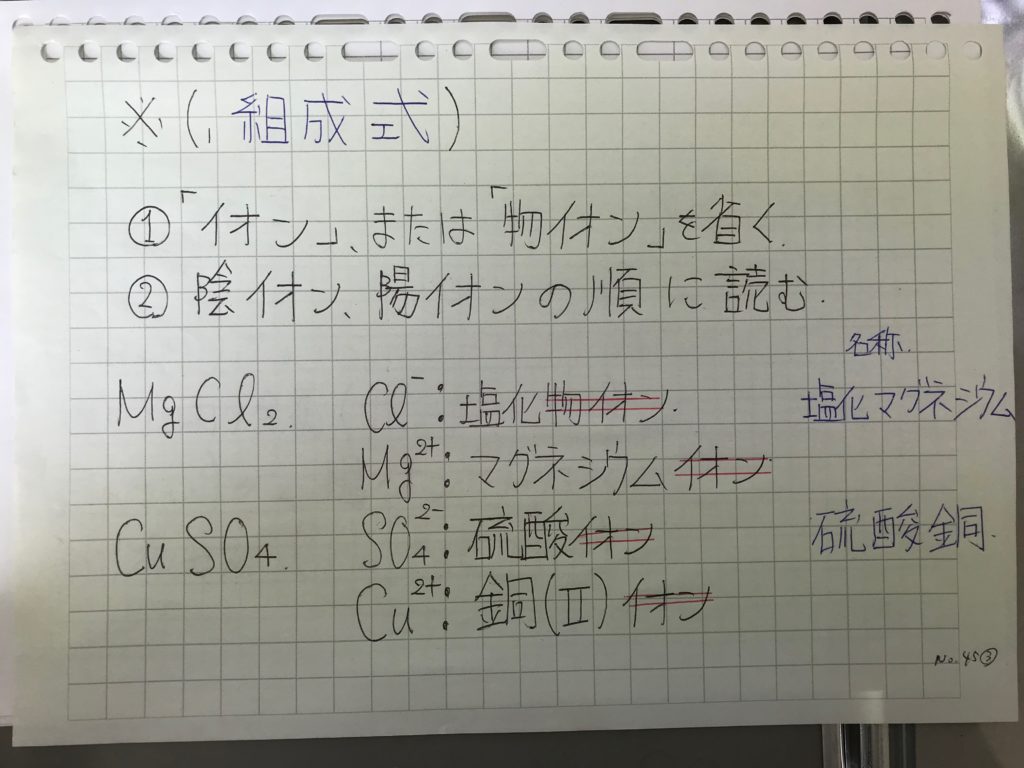 ※(1, 組成式)
①「イオン」、または「物イオン」を省く.
②陰イオン、陽イオンの順に読む.
名称.
MgCl₂. Cl⁻:塩化物イオン. 塩化マグネシウム
Mg²⁺:マグネシウムイオン
CuSO₄. SO₄²⁻:硫酸イオン 硫酸銅.
Cu²⁺:銅(Ⅱ)イオン
No.45③